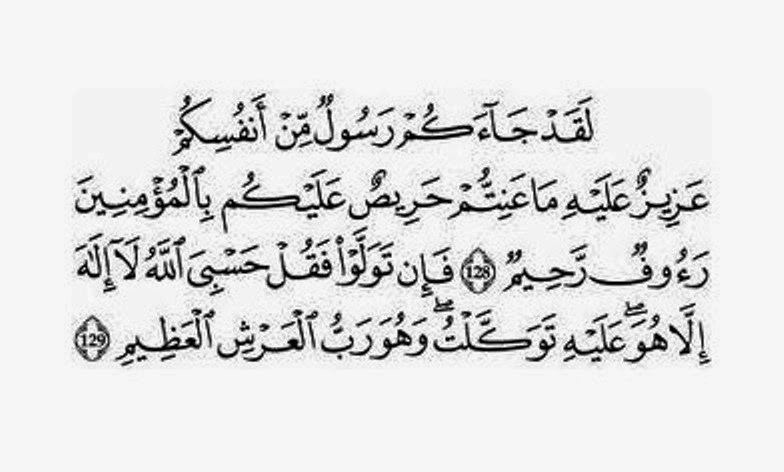 لَقَدْ جَآءَكُمْ رَسُولٌ مِّنْ أَنفُسِكُمْ
عَزِيزٌ عَلَيْهِ مَا عَنِتُّمْ حَرِيصٌ عَلَيْكُم بِٱلْمُؤْمِنِينَ
رَءُوفٌ رَّحِيمٌ 128 فَإِن تَوَلَّوْا۟ فَقُلْ حَسْبِىَ ٱللَّهُ لَآ إِلَٰهَ
إِلَّا هُوَ ۖ عَلَيْهِ تَوَكَّلْتُ ۖ وَهُوَ رَبُّ ٱلْعَرْشِ ٱلْعَظِيمِ 129